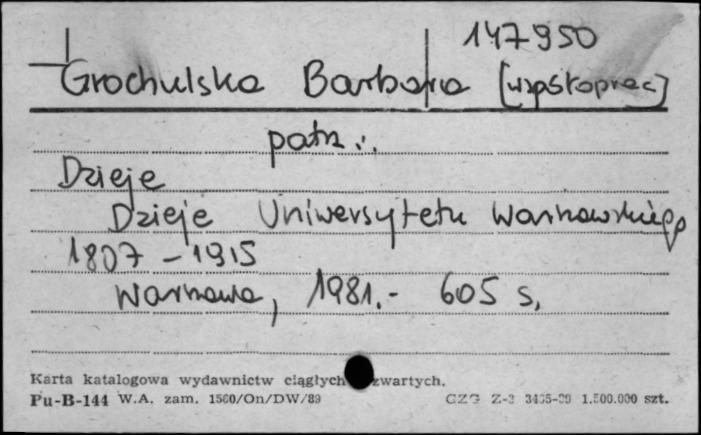 147950
Grochulska Barbara [współoprac]
patrz:
Dzieje
Dzieje Uniwersytetu Warszawskiego
1807 - 1915
Warszawa, 1981.- 605 s.
Karta katalogowa wydawnictw ciągłych zwartych.
Pu-B-144 W.A. zam. 1560/On/DW/89 CZG Z-3 1.500.000 szt.